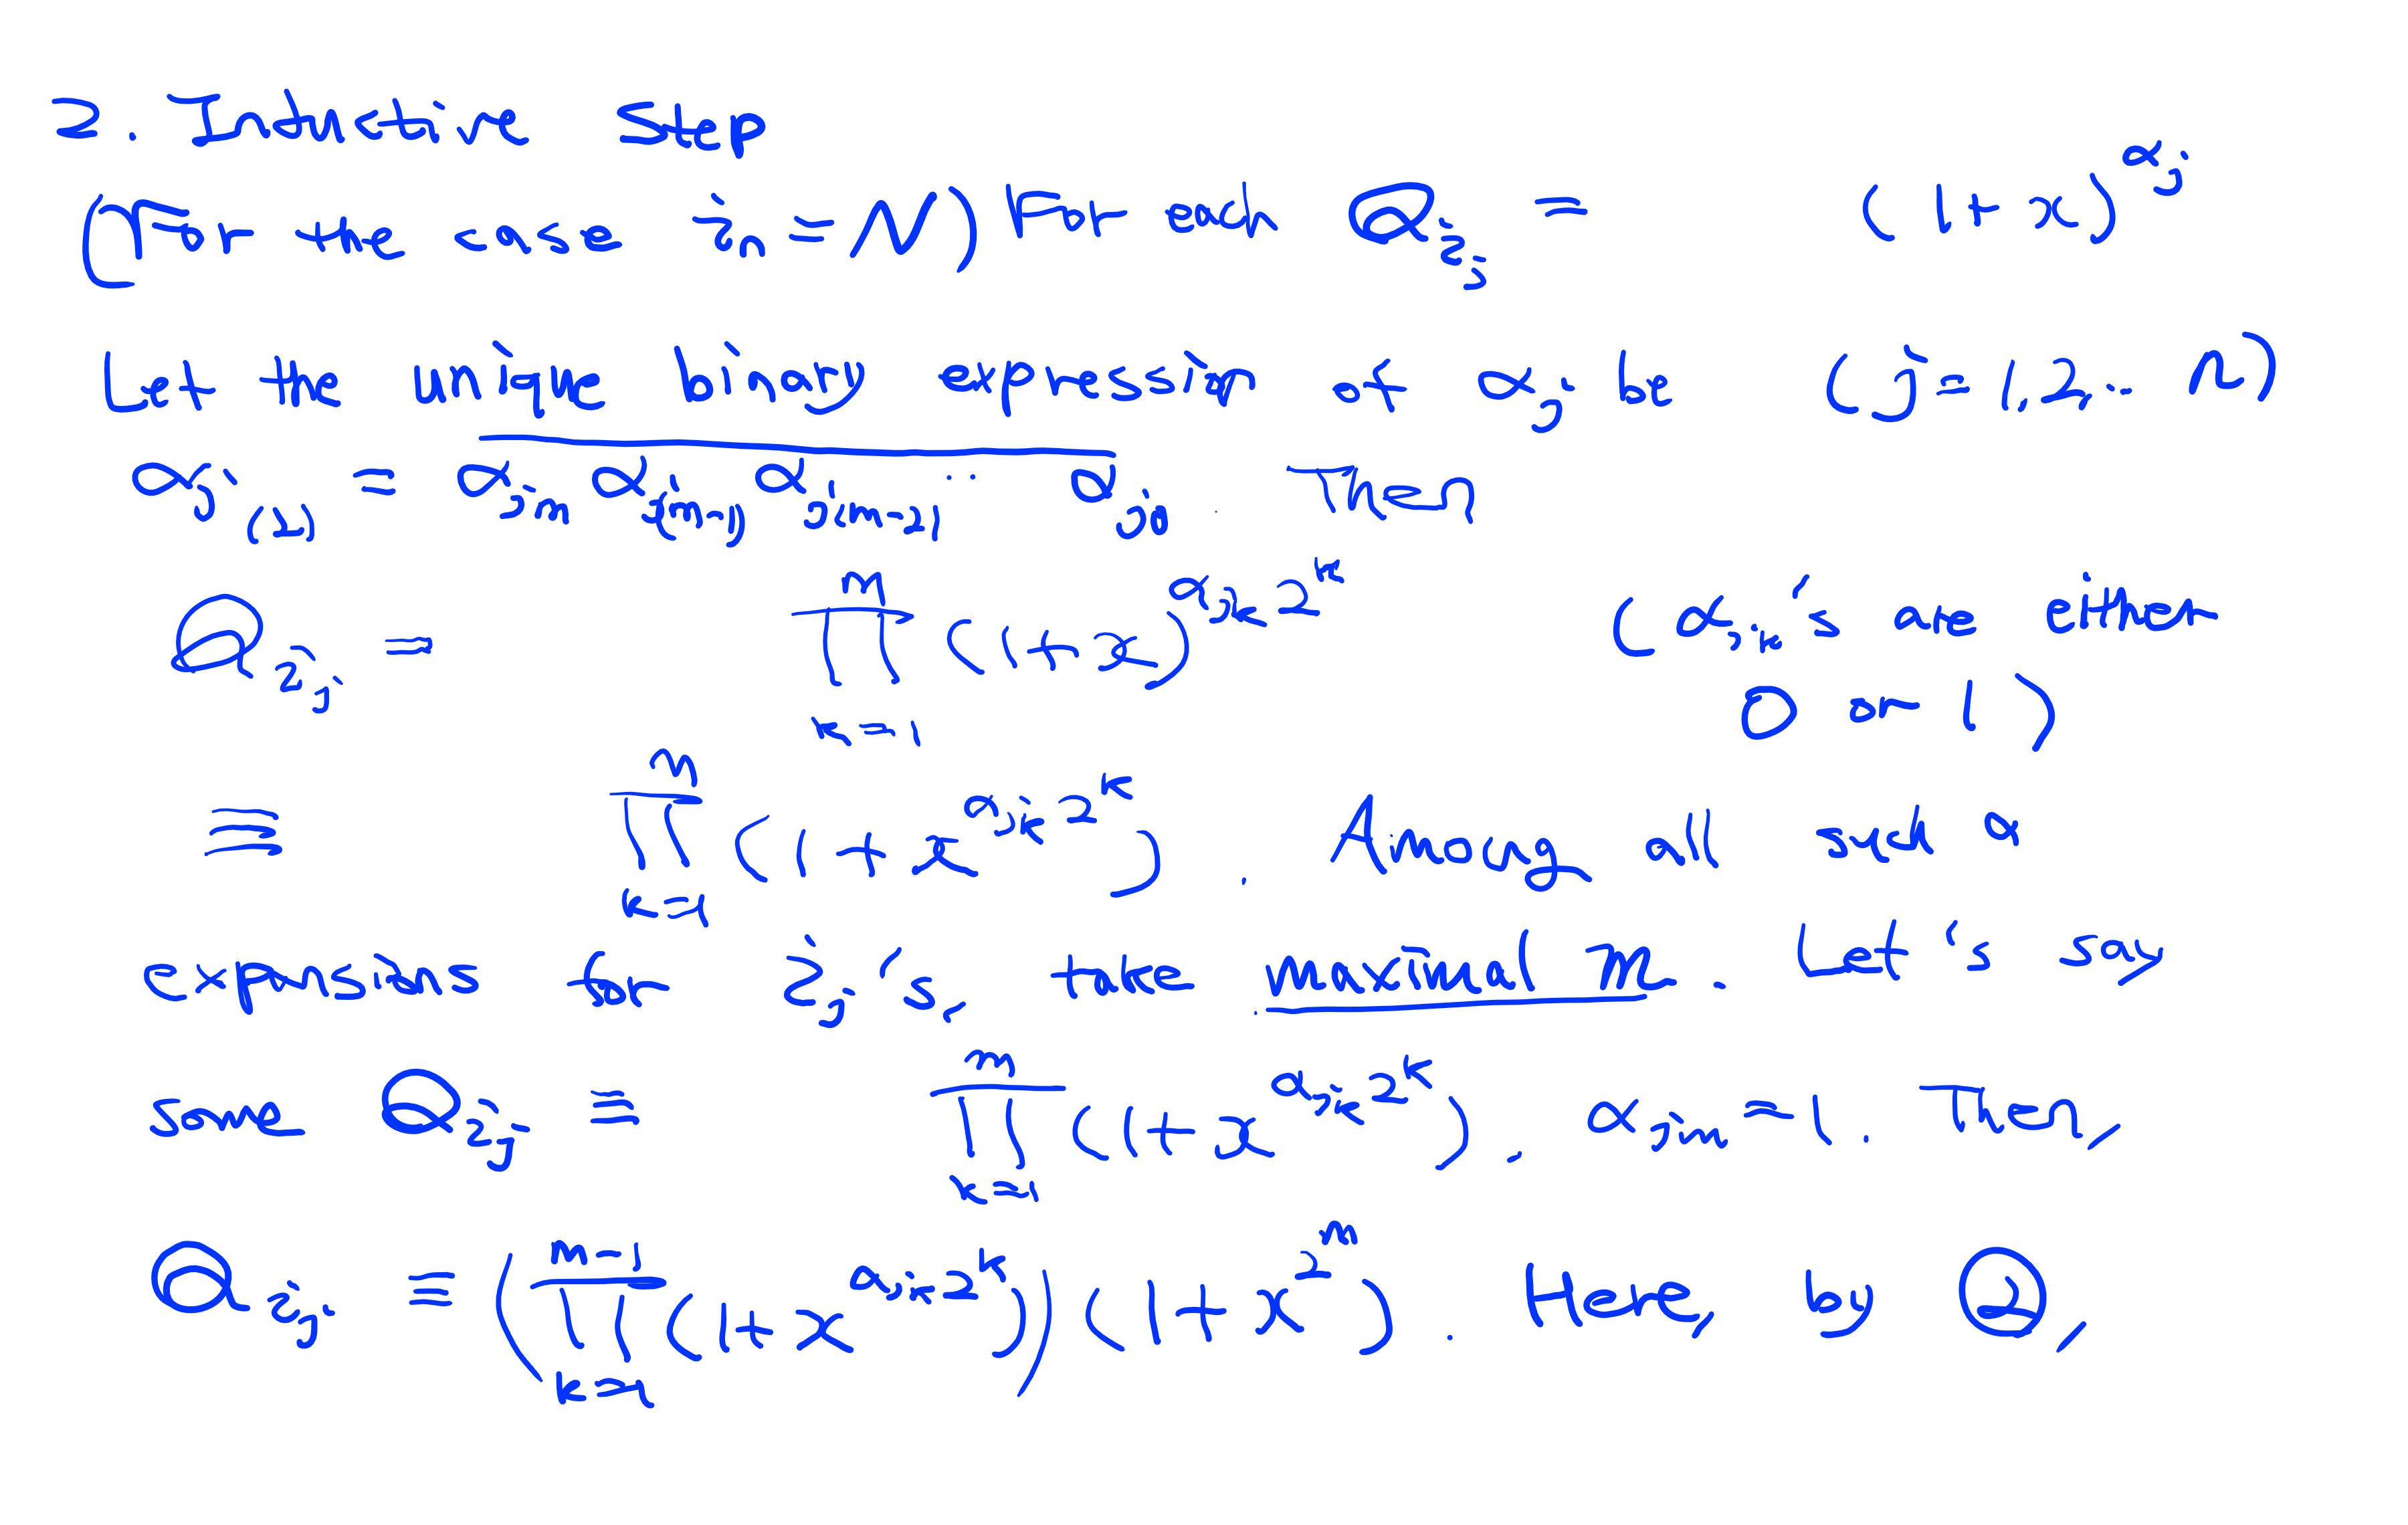 2. Inductive Step
(For the case i_n = N) For each Q_{i_j} = (1+x)^{α_j}
Let the unique binary expression of α_j be (j=1,2,.. n)
α_{j(2)} = \overline{α_{jm} α_{j(m-1)} α_{j(m-2)} .. α_{j0}}. Then
Q_{i_j} = ∏_{k=1}^{m} (1+x)^{α_{jk} 2^k} (α_{jk}'s are either
0 or 1)
≡ ∏_{k=1}^{m} (1+x^{α_{jk} 2^k}). Among all such α
expansions for i_j's, take maximal m. Let's say
some Q_{i_j} ≡ ∏_{k=1}^{m} (1+x^{α_{jk} 2^k}), α_{jm}=1. Then,
Q_{i_j} ≡ (∏_{k=1}^{m-1} (1+x^{α_{jk} 2^k})) (1+x^{2^m}). Here, by ②,